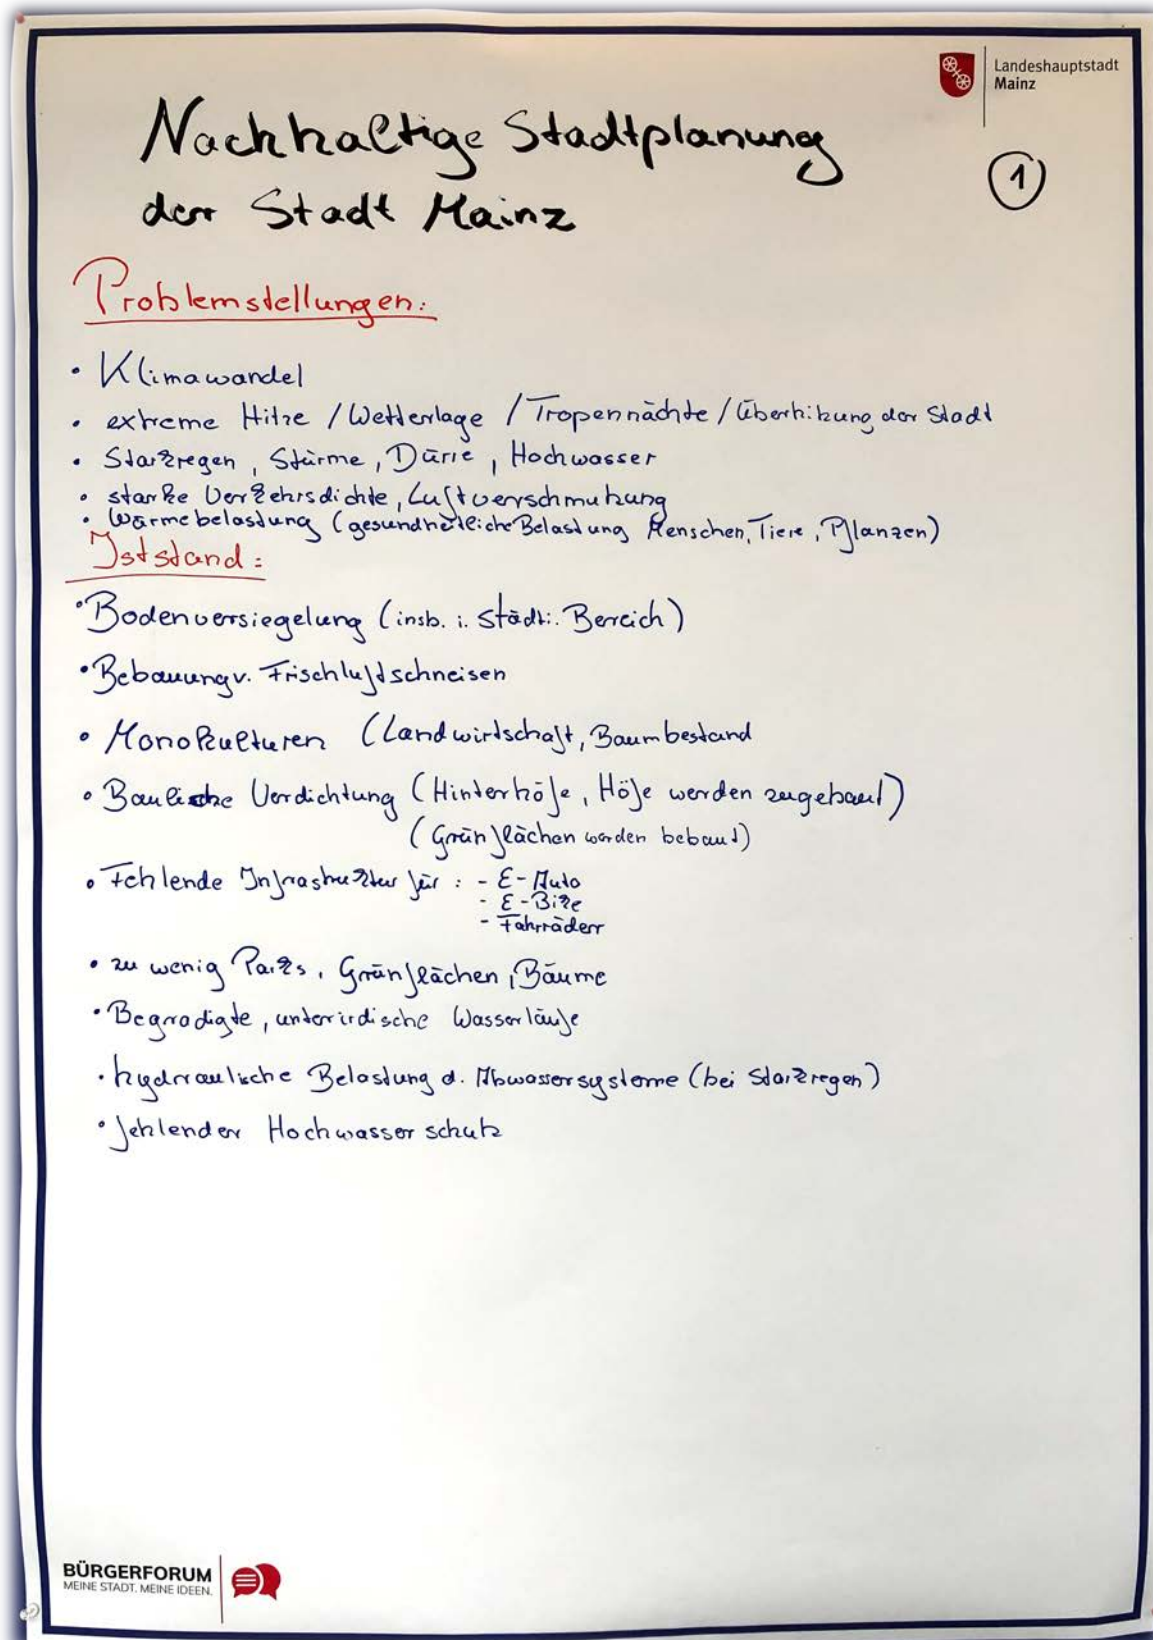 Landeshauptstadt
Mainz
Nachhaltige Stadtplanung
der Stadt Mainz
1
Problemstellungen:
• Klimawandel
• extreme Hitze / Wetterlage / Tropennächte / Überhitzung der Stadt
• Starkregen, Stürme, Dürre, Hochwasser
• starke Verkehrsdichte, Luftverschmutzung
• Wärmebelastung (gesundheitliche Belastung Menschen, Tiere, Pflanzen)
Iststand:
• Bodenversiegelung (insb. i. städti. Bereich)
• Bebauung v. Frischluftschneisen
• Monokulturen (Landwirtschaft, Baumbestand
• Bauliche Verdichtung (Hinterhöfe, Höfe werden zugebaut)
(Grünflächen werden bebaut)
• Fehlende Infrastruktur für: - E-Auto
- E-Bike
- Fahrräder
• zu wenig Parks, Grünflächen, Bäume
• Begradigte, unterirdische Wasserläufe
• hydraulische Belastung d. Abwassersysteme (bei Starkregen)
• fehlender Hochwasserschutz
BÜRGERFORUM
MEINE STADT. MEINE IDEEN.